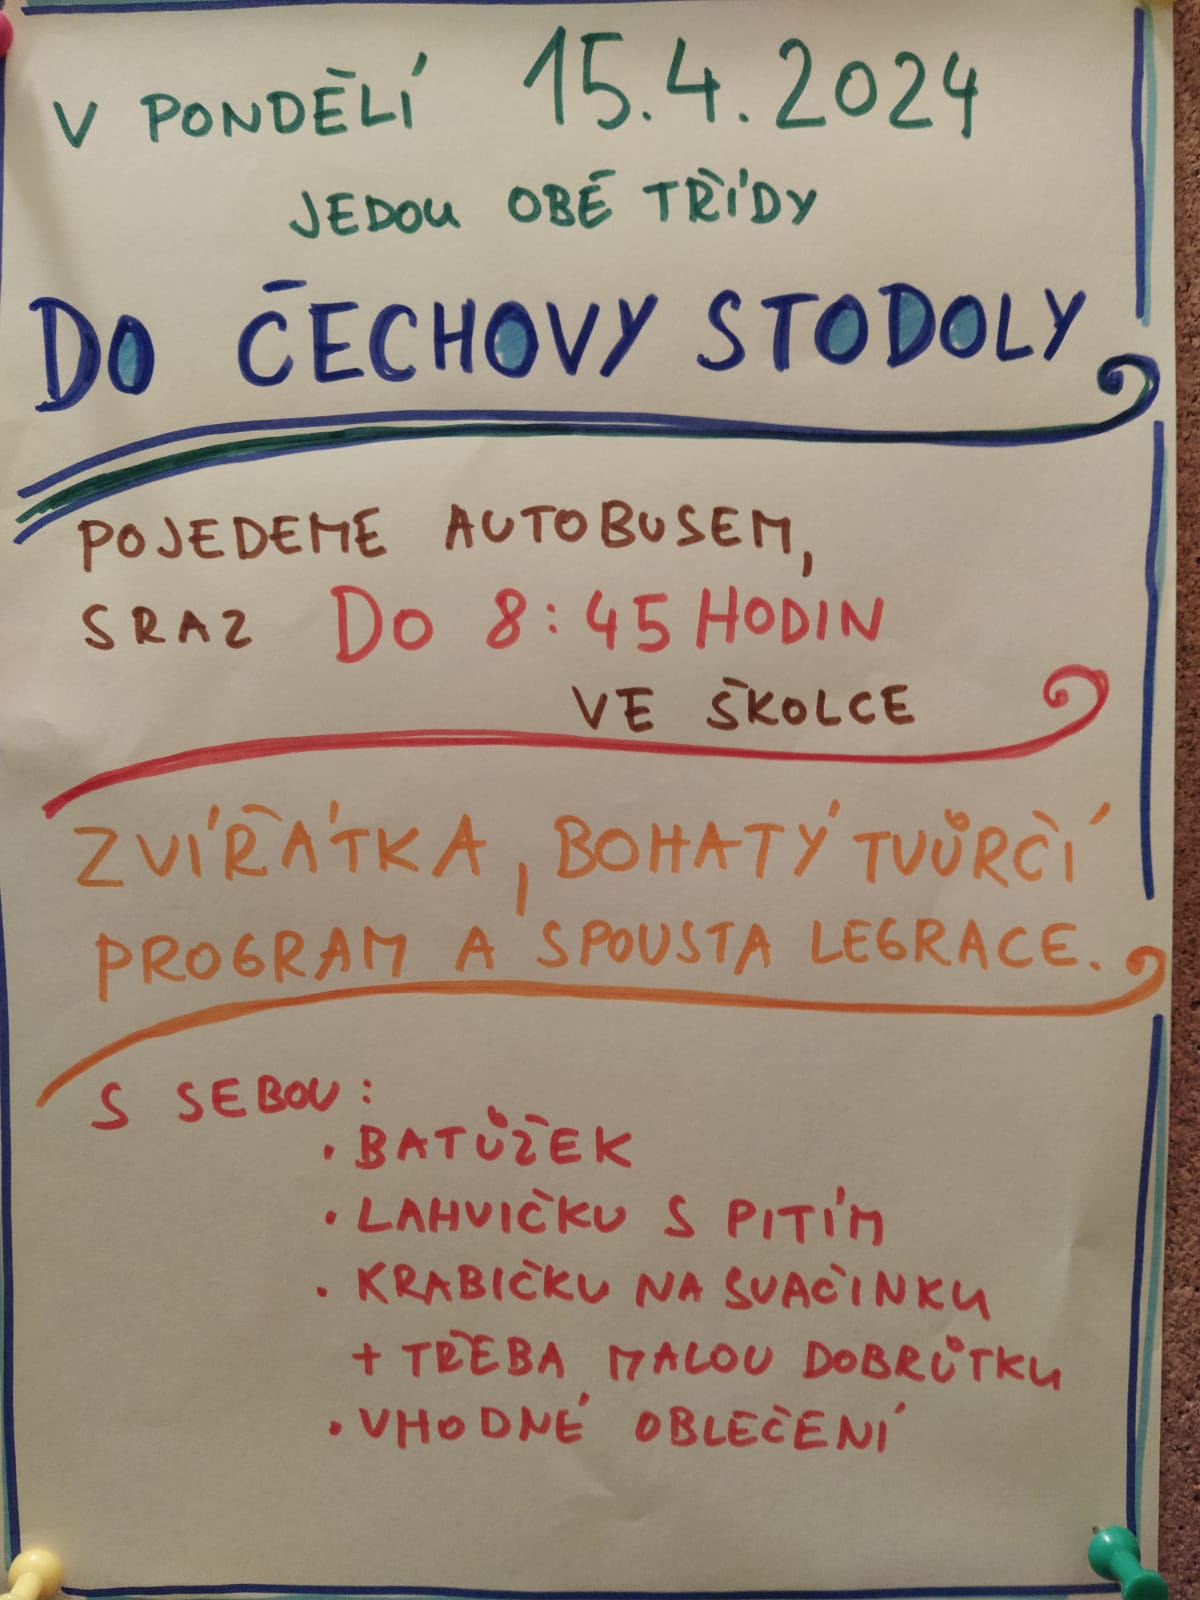 V PONDĚLÍ 15.4.2024
JEDOU OBĚ TŘÍDY
DO ČECHOVY STODOLY
POJEDEME AUTOBUSEM,
SRAZ DO 8:45 HODIN
VE ŠKOLCE
ZVÍŘÁTKA, BOHATÝ TVŮRČÍ
PROGRAM A SPOUSTA LEGRACE.
S SEBOU:
• BATŮŽEK
• LAHVIČKU S PITÍM
• KRABIČKU NA SVAČINKU
+ TŘEBA MALOU DOBRŮTKU
• VHODNÉ OBLEČENÍ